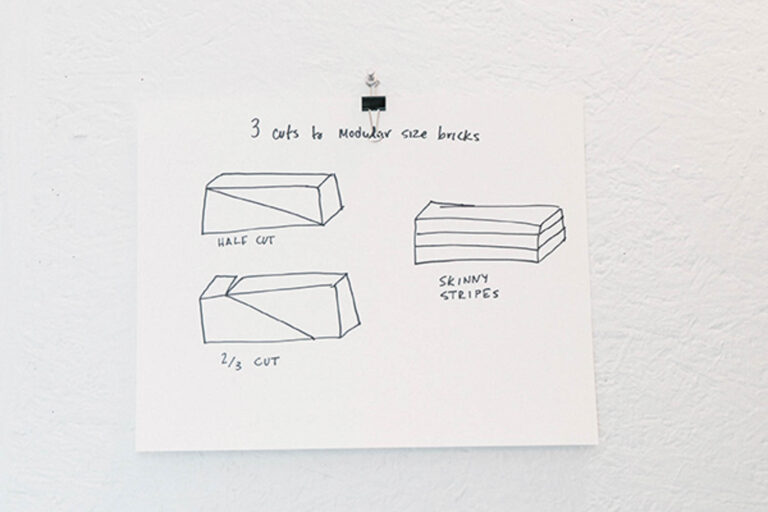 3 cuts to Modular size bricks
HALF CUT
SKINNY
STRIPES
2/3 CUT